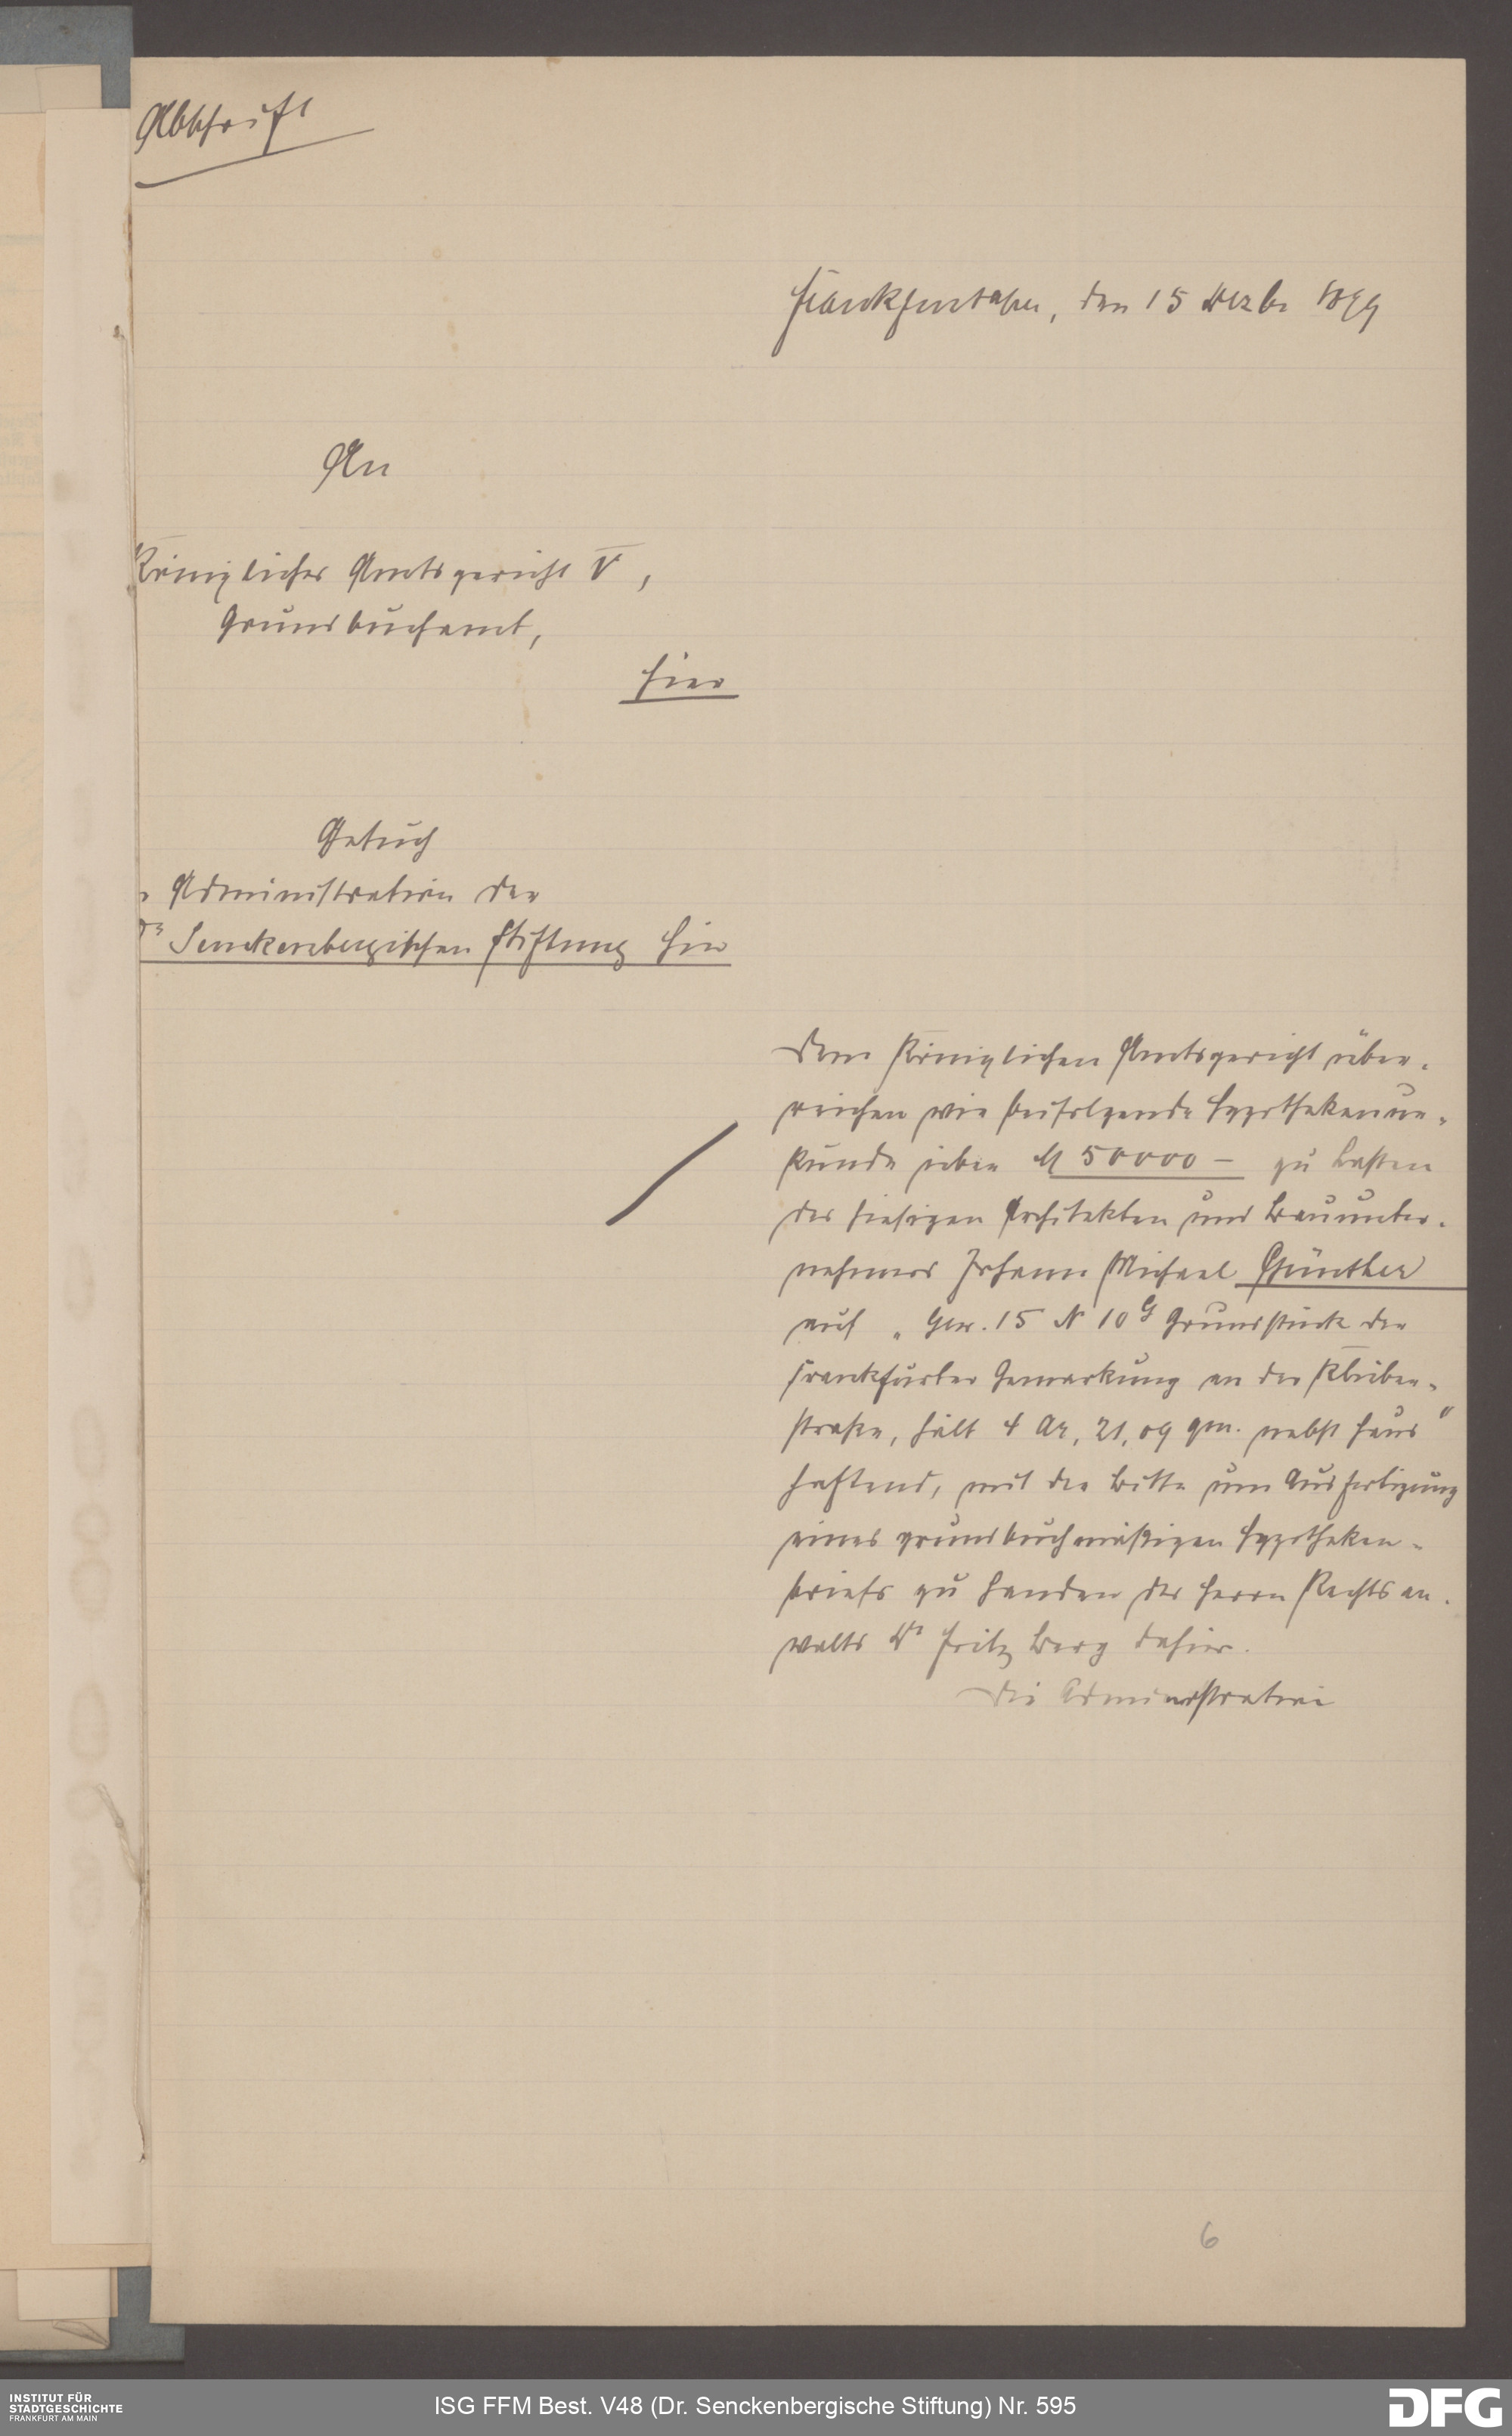 Abschrift
Frankfurt a/M, den 15 Dezbr 1899
An
Königliches Amtsgericht V,
Grundbuchamt,
hier
Gesuch
r Administration der
Dr Senckenbergischen Stiftung hier
Dem Königlichen Amtsgericht über-
reichen wir beifolgende Hypothekenur-
kunde über M 50000 – zu Lasten
des hiesigen Architekten und Bauunter-
nehmers Johann Michael Günther
auf „Gew. 15 N 10 G Grundstück der
Frankfurter Gemarkung an der Klüber-
straße, hält 4 Ar, 21,09 qm. nebst Haus"
haftend, mit der Bitte um Ausfertigung
eines grundbuchmäßigen Hypotheken-
briefs zu Handen des Herrn Rechtsan-
walts Dr Fritz Berg dahier.
Die Administration
6
INSTITUT FÜR
STADTGESCHICHTE
FRANKFURT AM MAIN
ISG FFM Best. V48 (Dr. Senckenbergische Stiftung) Nr. 595
DFG